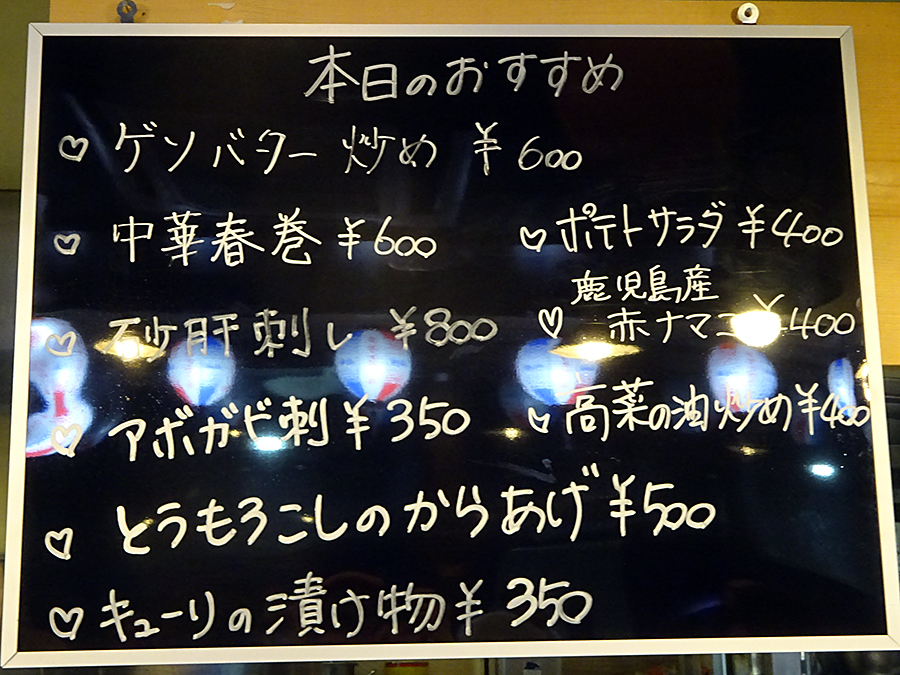 本日のおすすめ
♡ ゲソバター炒め ¥600
♡ 中華春巻 ¥600
♡ 砂肝刺し ¥800
♡ アボガド刺 ¥350
♡ とうもろこしのからあげ ¥500
♡ キューリの漬け物 ¥350
♡ ポテトサラダ ¥400
鹿児島産
♡ 赤ナマコ ¥400
♡ 高菜の油炒め ¥400